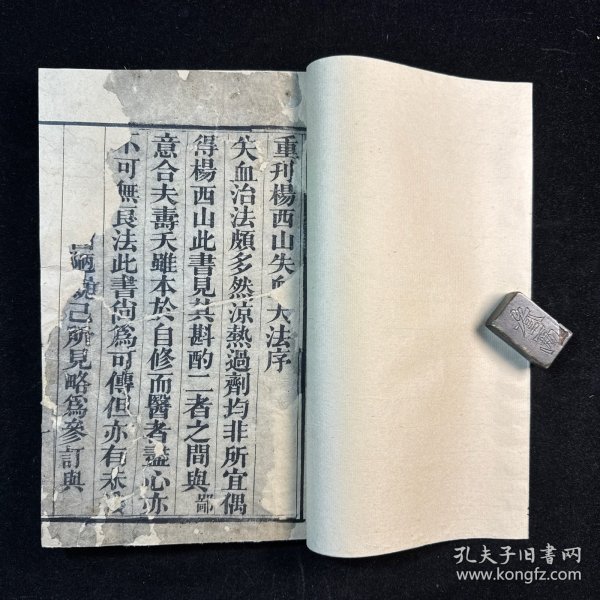 重刊楊西山失血大法序
失血治法頗多然涼熱過劑均非所宜偶
得楊西山此書見其斟酌二者之間與鄙
意合夫壽夭雖本於自修而醫者盡心亦
不可無良法此書尚為可傳但亦有未
己所見略為參訂與
孔夫子旧书网
www.kongfz.com